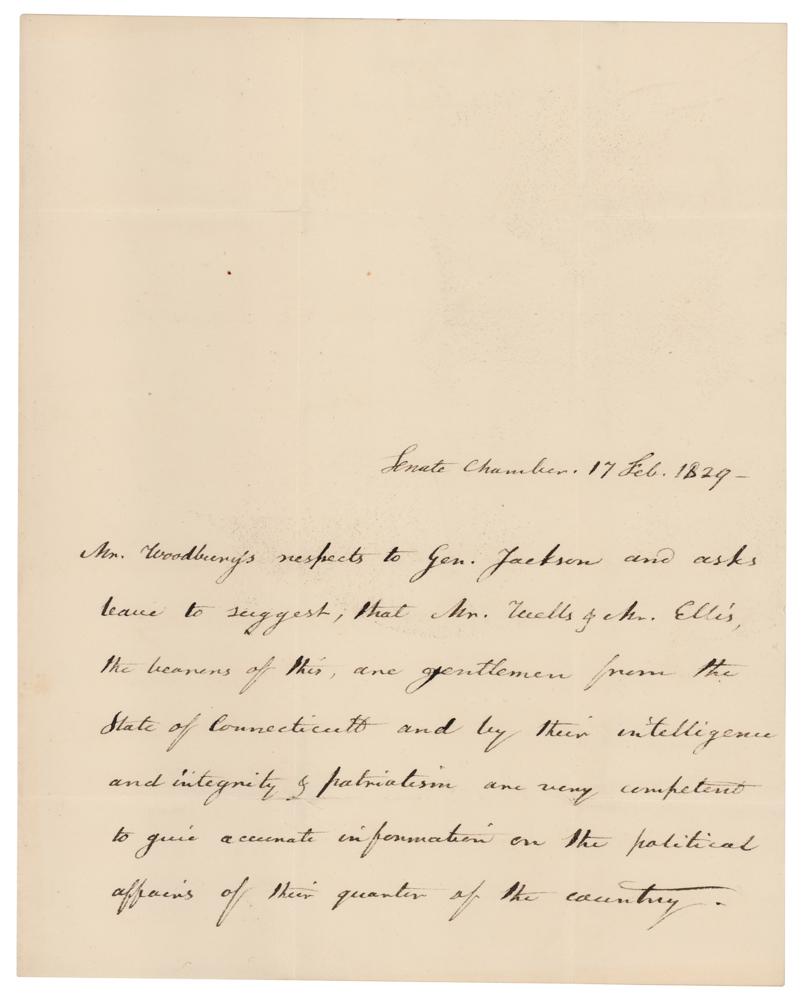 Senate Chamber. 17 Feb. 1829 –
Mr. Woodbury's respects to Gen. Jackson and asks
leave to suggest, that Mr. Wells & Mr. Ellis,
the bearers of this, are gentlemen from the
State of Connecticutt and by their intelligence
and integrity & patriotism are very competent
to give accurate information on the political
affairs of their quarter of the country.